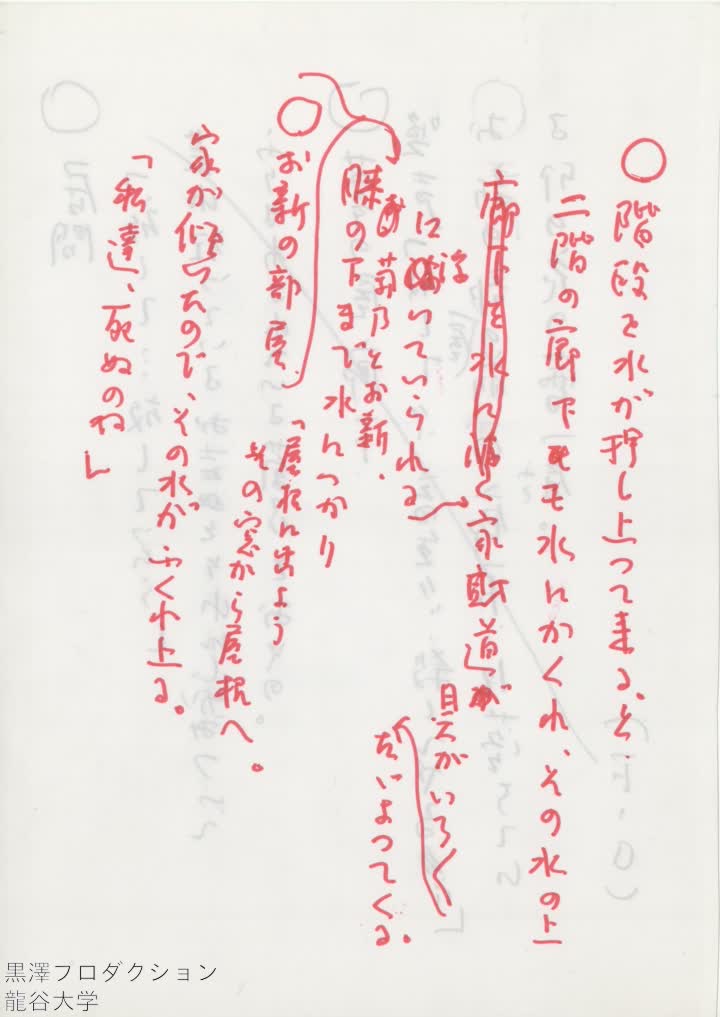 ○ 階段を水が押し上つて来る。と、
二階の廊下も水にかくれ、その水の上
に浮いていられる
家財道
具がいろ〱
たゞよつてくる。
お菊乃とお新、
膝の下まで水につかり
○ お新の部屋、
「屋根に出よう
その窓から屋根へ。
家が傾いたので、その水がふくれ上る。
「私達、死ぬのね」
黒澤プロダクション
龍谷大学